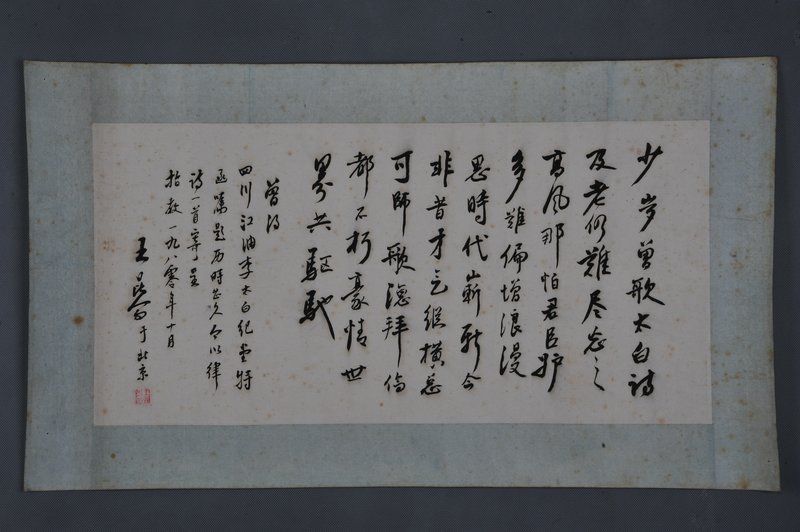 少岁曾歌太白诗
及老仍难尽忘之
高风那怕君臣妒
多难偏增浪漫
思时代崭新今
非昔才气纵横总
可师歌德拜伦
都不朽豪情世
界共驱驰
曾得
四川江油李太白纪念堂特
函嘱题为时已久今以律
诗一首寄呈
指教一九八〇年十月
王昆仑于北京